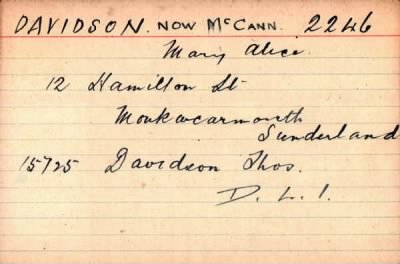 DAVIDSON. NOW McCANN. 2246
Mary Alice.
12 Hamilton St
Monkwearmouth
Sunderland
15725 Davidson Thos.
D. L. I.